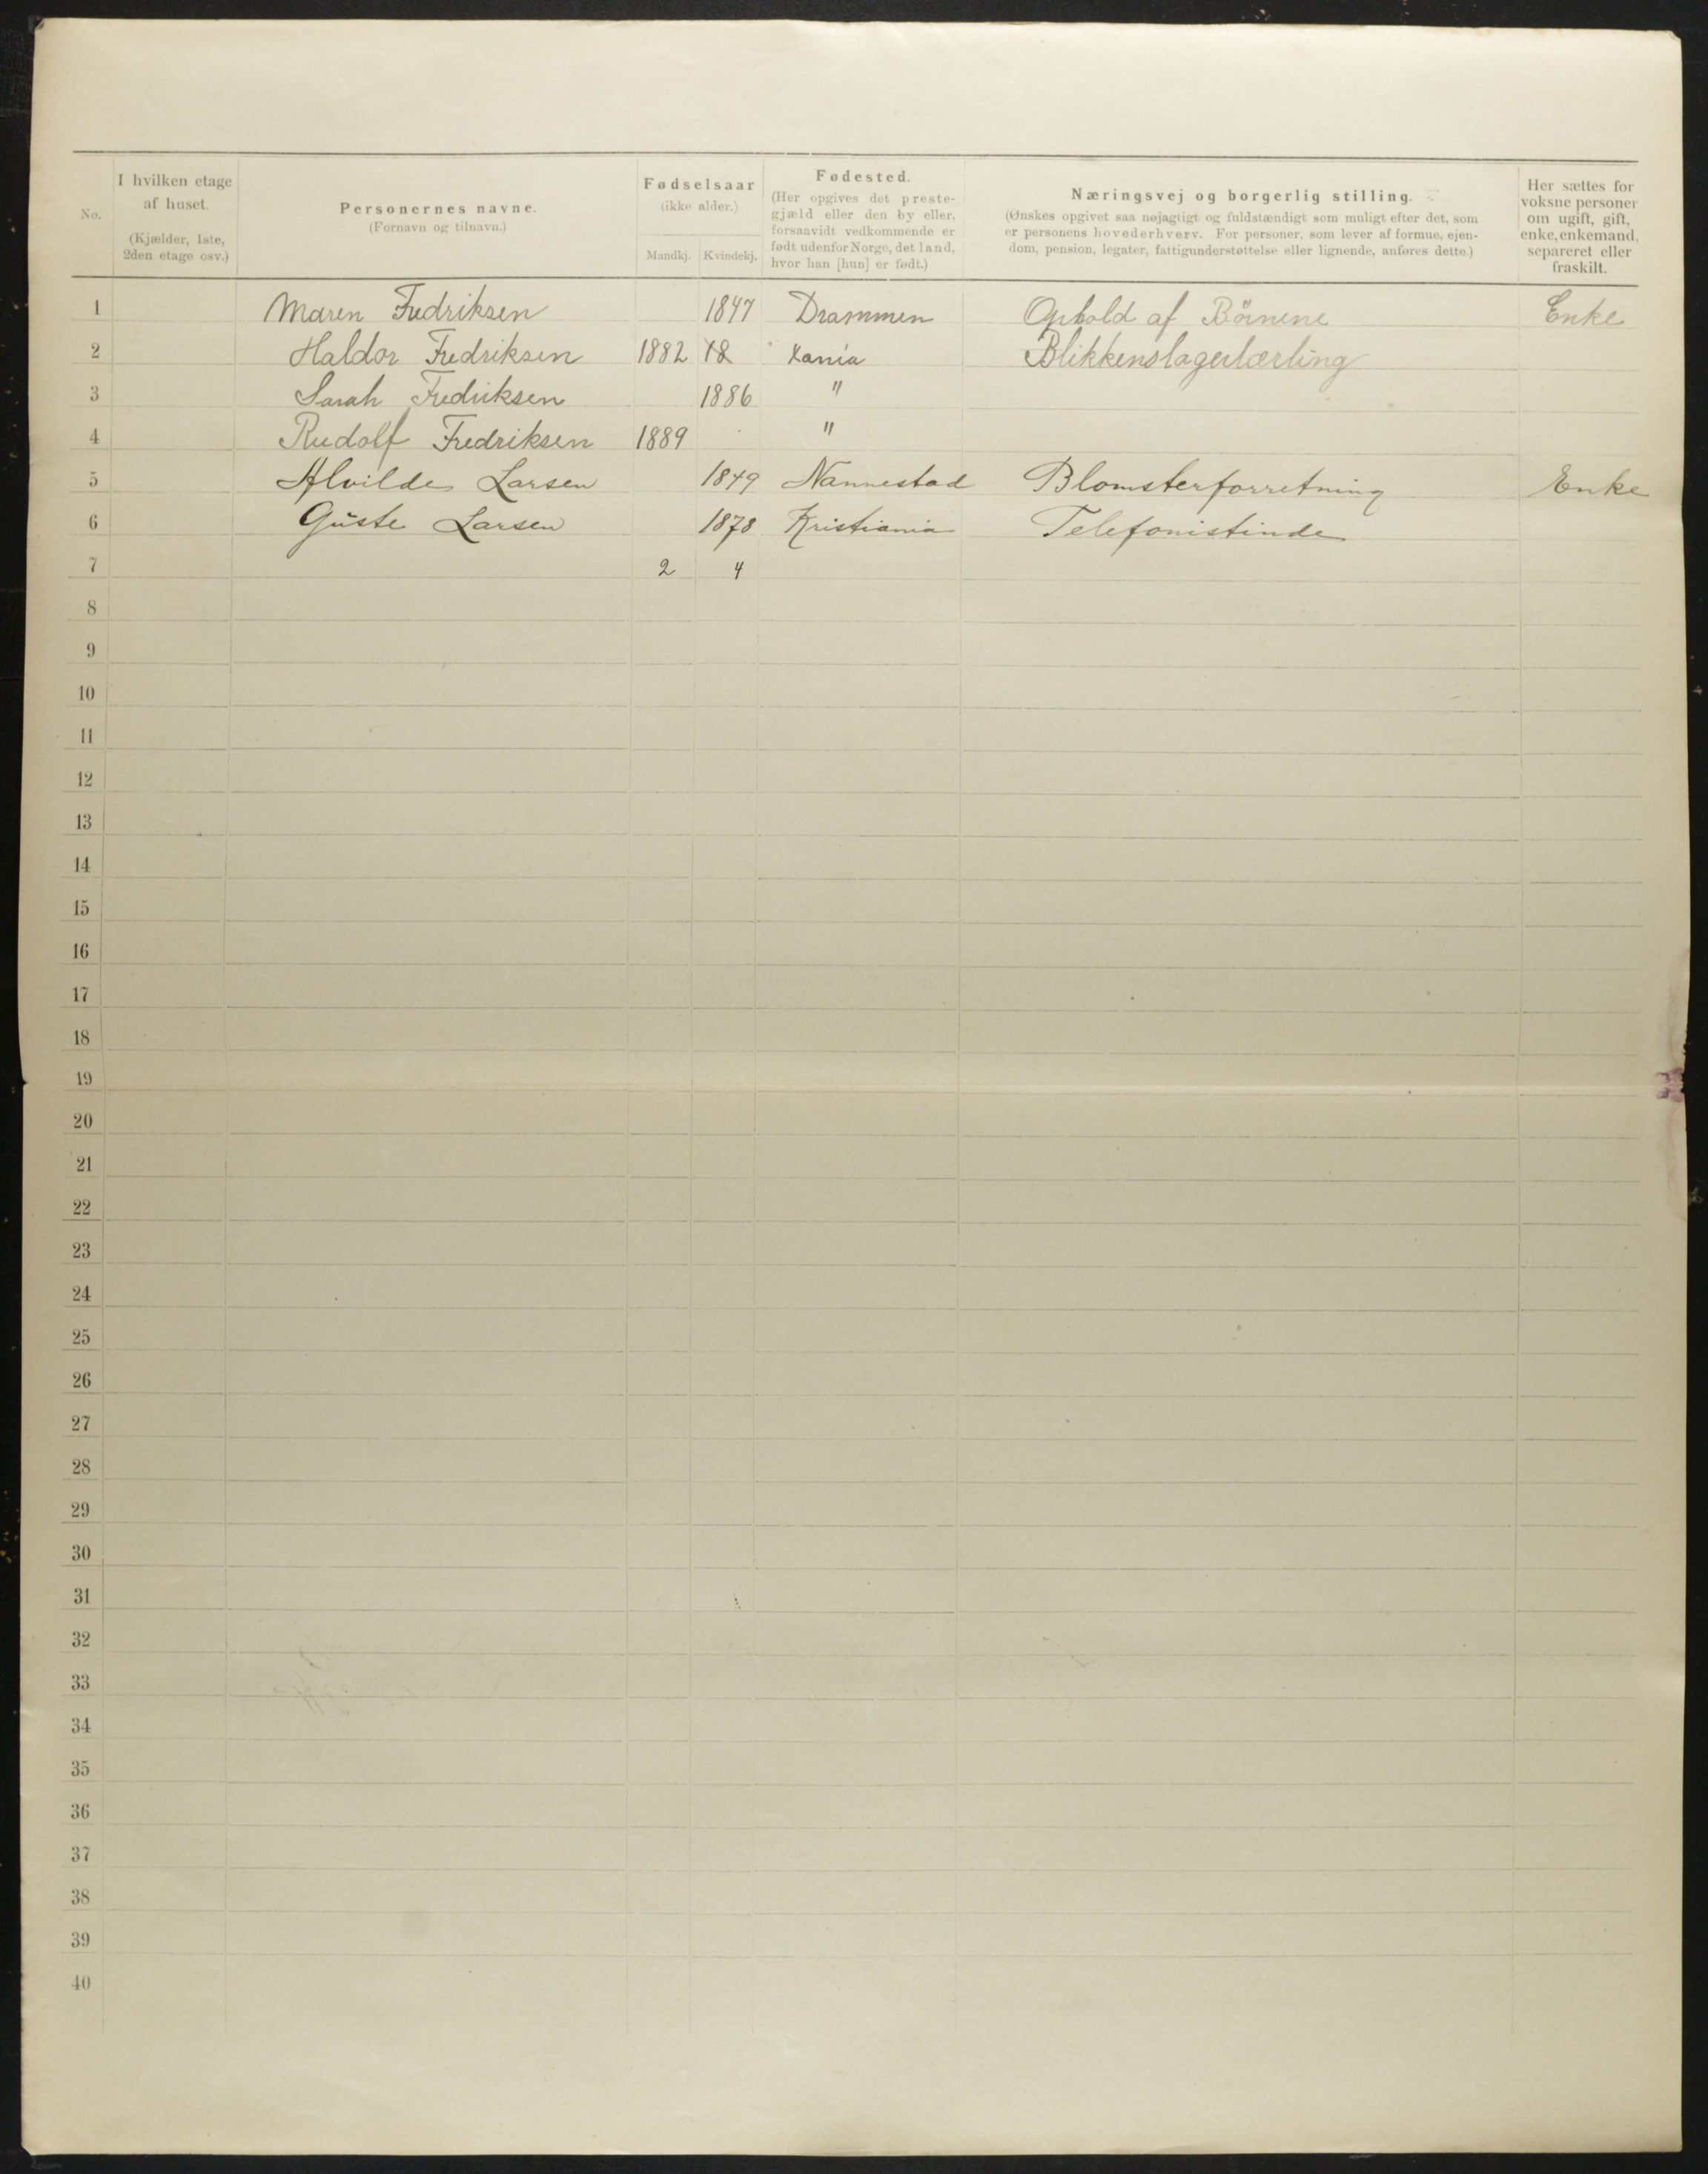 No.
I hvilken etage
af huset.
(Kjælder, 1ste,
2den etage osv.)
Personernes navne.
(Fornavn og tilnavn.)
Fødselsaar
(ikke alder.)
Mandkj. Kvindekj.
Fødested.
(Her opgives det preste-
gjæld eller den by eller,
forsaavidt vedkommende er
født udenfor Norge, det land,
hvor han [hun] er født.)
Næringsvej og borgerlig stilling.
(Ønskes opgivet saa nøjagtigt og fuldstændigt som muligt efter det, som
er personens hovederhverv. For personer, som lever af formue, ejen-
dom, pension, legater, fattigunderstøttelse eller lignende, anføres dette.)
Her sættes for
voksne personer
om ugift, gift,
enke, enkemand,
separeret eller
fraskilt.
1 Maren Fredriksen 1847 Drammen Ophold af Börnene Enke
2 Haldor Fredriksen 1882 18 Xania Blikkenslagerlærling
3 Sarah Fredriksen 1886 "
4 Rudolf Fredriksen 1889 "
5 Alvilde Larsen 1849 Nannestad Blomsterforretning Enke
6 Guste Larsen 1878 Kristiania Telefonistinde
7 2 4
8
9
10
11
12
13
14
15
16
17
18
19
20
21
22
23
24
25
26
27
28
29
30
31
32
33
34
35
36
37
38
39
40